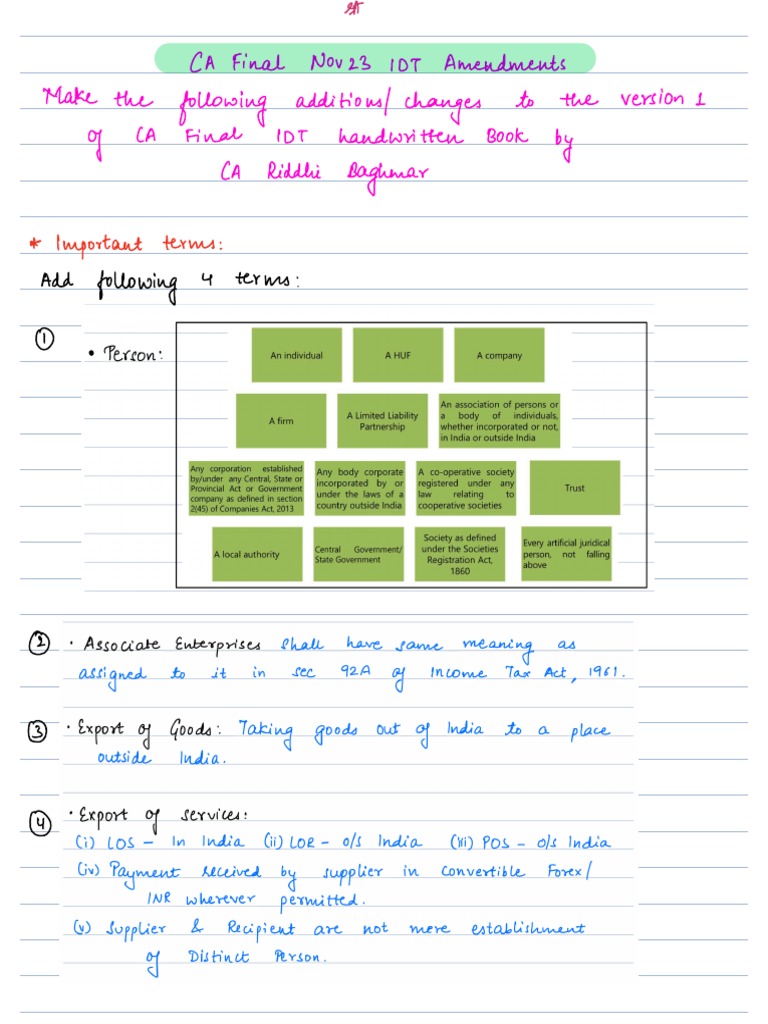 CA Final Nov 23 IDT Amendments
Make the following additions/changes to the version 1
of CA Final IDT handwritten Book by
CA Riddhi Baghmar
* Important terms:
Add following 4 terms:
① • Person:
An individual
A HUF
A company
A firm
A Limited Liability
Partnership
An association of persons or
a body of individuals,
whether incorporated or not,
in India or outside India
Any corporation established
by/under any Central, State or
Provincial Act or Government
company as defined in section
2(45) of Companies Act, 2013
Any body corporate
incorporated by or
under the laws of a
country outside India
A co-operative society
registered under any
law relating to
cooperative societies
Trust
A local authority
Central Government/
State Government
Society as defined
under the Societies
Registration Act,
1860
Every artificial juridical
person, not falling
above
② • Associate Enterprises shall have same meaning as
assigned to it in sec 92A of Income Tax Act, 1961.
③ • Export of Goods: Taking goods out of India to a place
outside India.
④ • Export of services:
(i) LOS - In India (ii) LOR - o/s India (iii) POS - o/s India
(iv) Payment received by supplier in convertible Forex/
INR wherever permitted.
(v) Supplier & Recipient are not mere establishment
of Distinct Person.